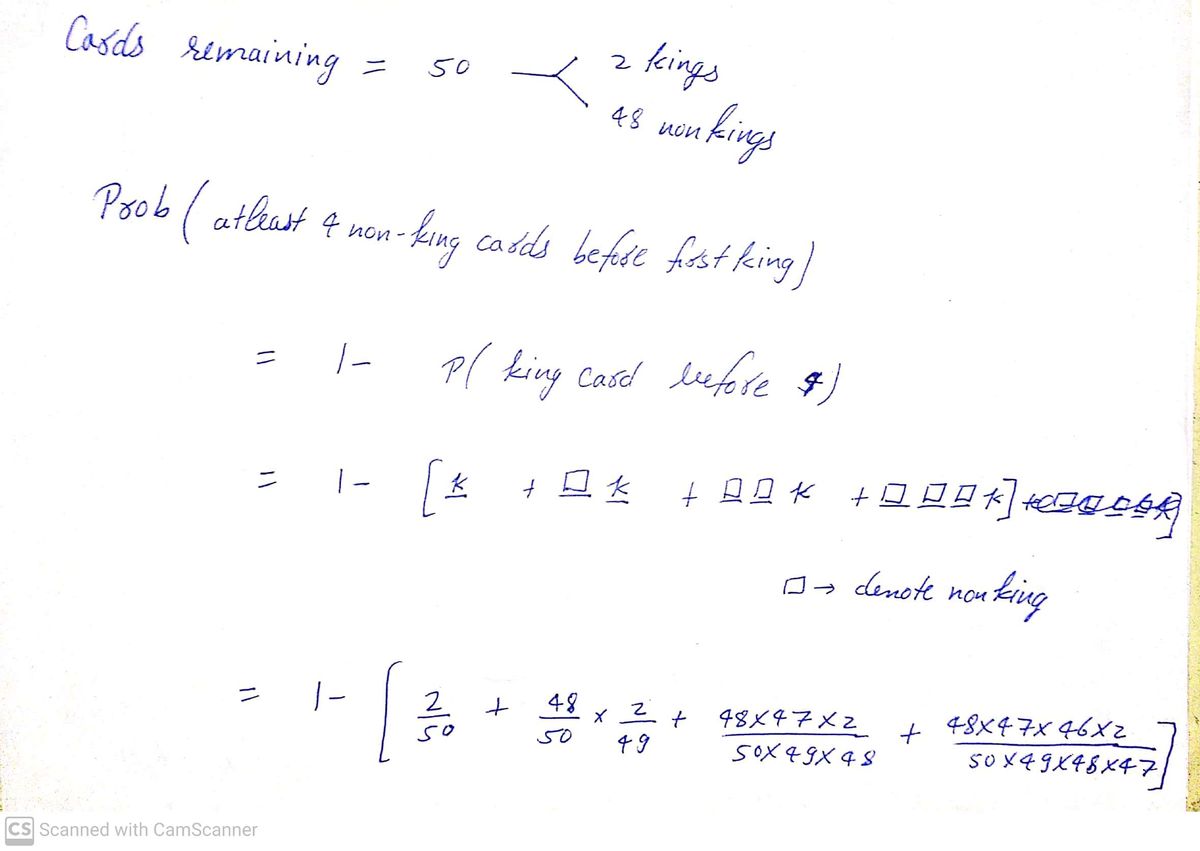 Cards remaining = 50 < 2 kings
48 non kings
Prob ( atleast 4 non-king cards before first king)
= 1- P( king card before 4)
= 1- [ k + □ k + □ □ k + □ □ □ k]
□ → denote non king
= 1- [ 2/50 + 48/50 x 2/49 + 48x47x2/50x49x48 + 48x47x46x2/50x49x48x47 ]
CS Scanned with CamScanner